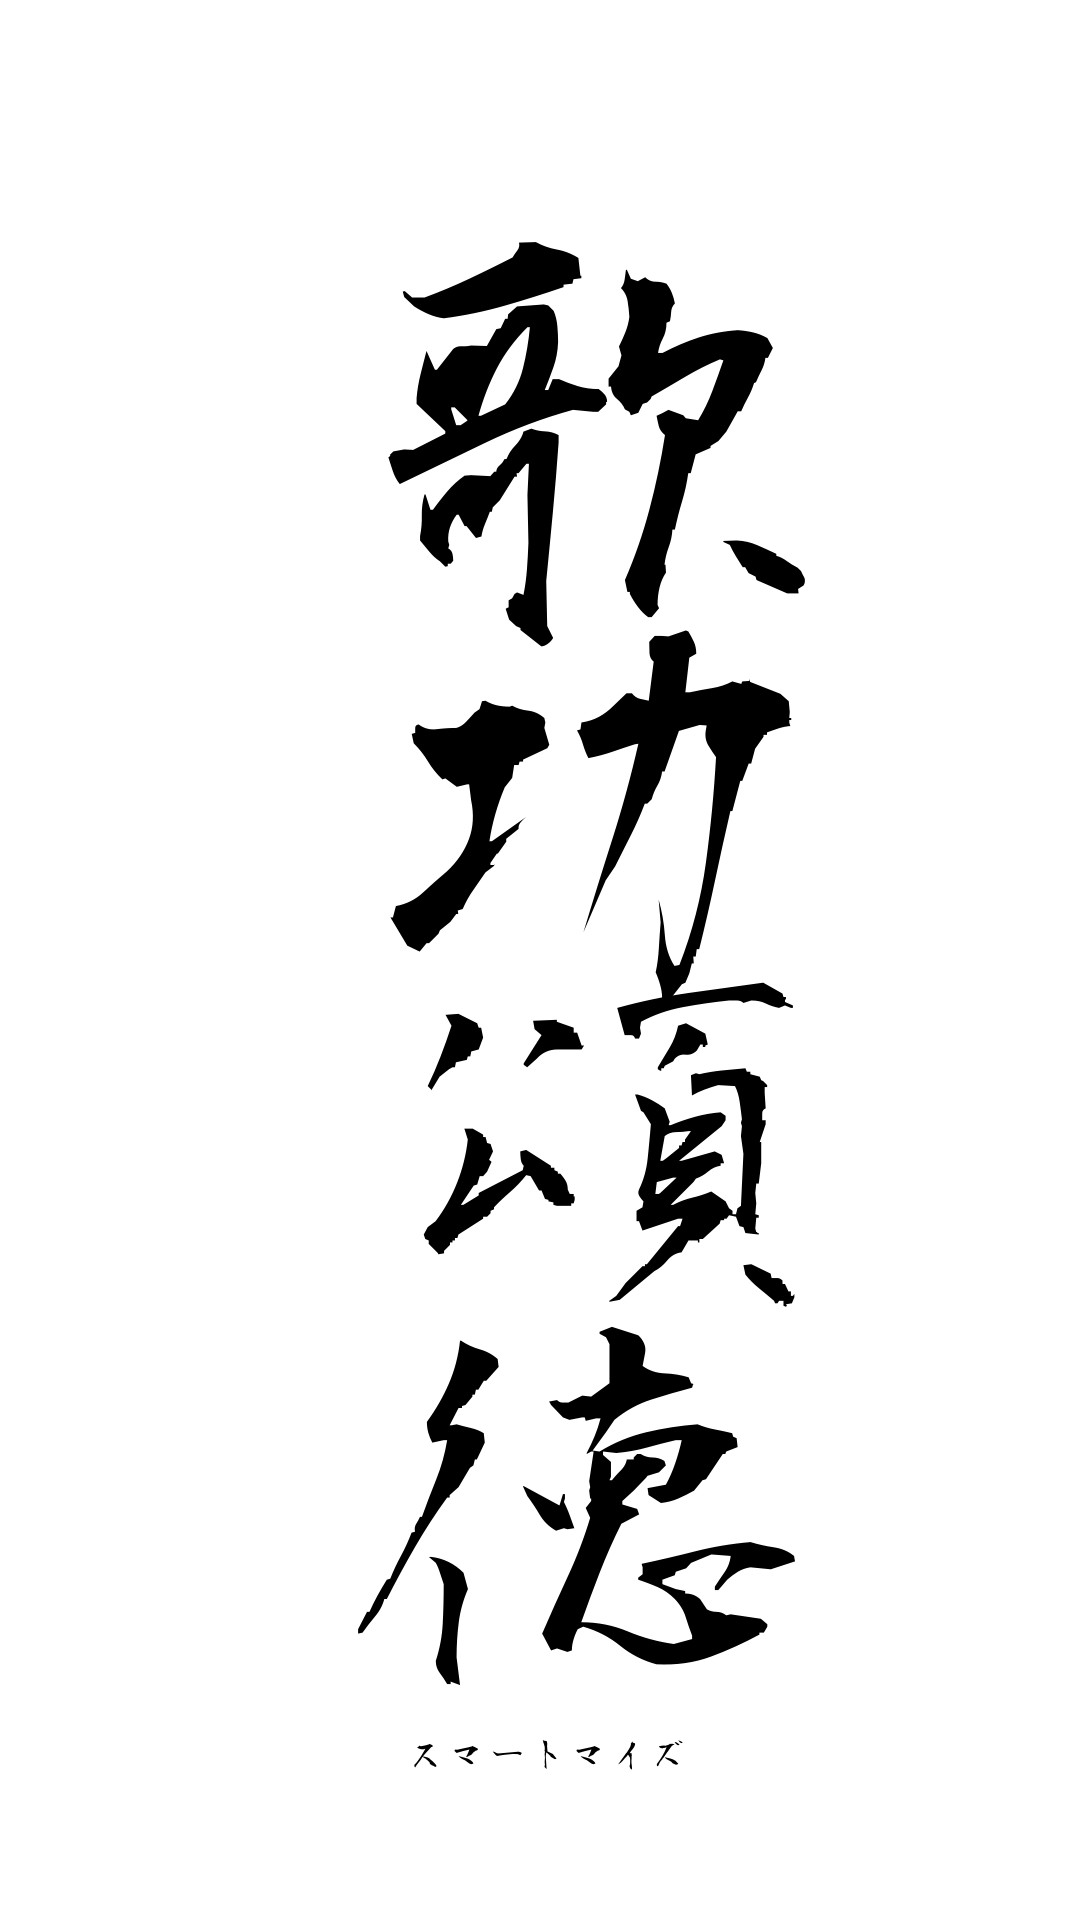 歌功頌徳
スマートマイズ